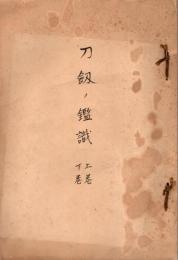 刀劔ノ鑑識
上巻
下巻